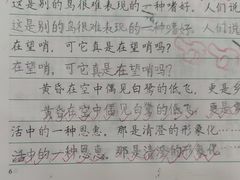 这是别的鸟很难表现的一种嗜好。人们说
这是别的鸟很难表现的一种嗜好。人们说
在望哨，可它真是在望哨吗？
在望哨，可它真是在望哨吗？
黄昏在空中偶见白鹭的低飞，更是乡
黄昏在空中偶见白鹭的低飞，更是
活中的一种恩惠。那是清澄的形象化
活中的一种恩惠。那是清澄的形象化
6